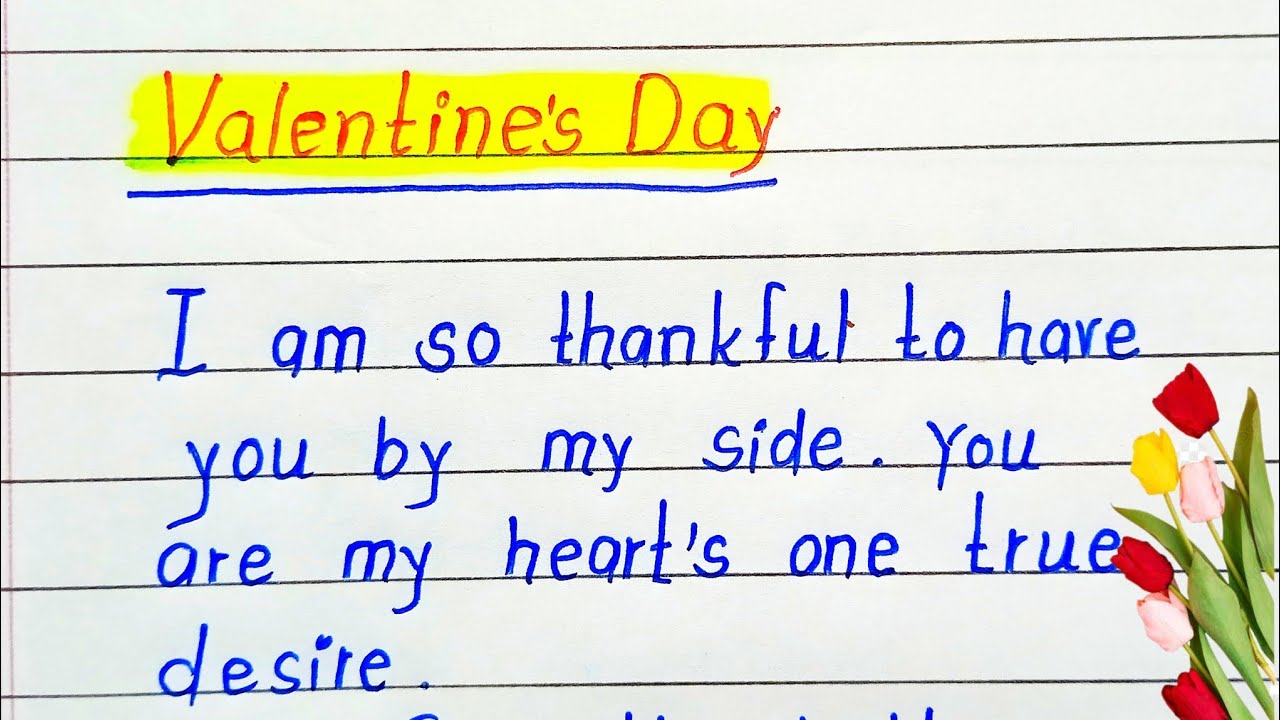 Valentine's Day
I am so thankful to have
you by my side. You
are my heart's one true
desire.